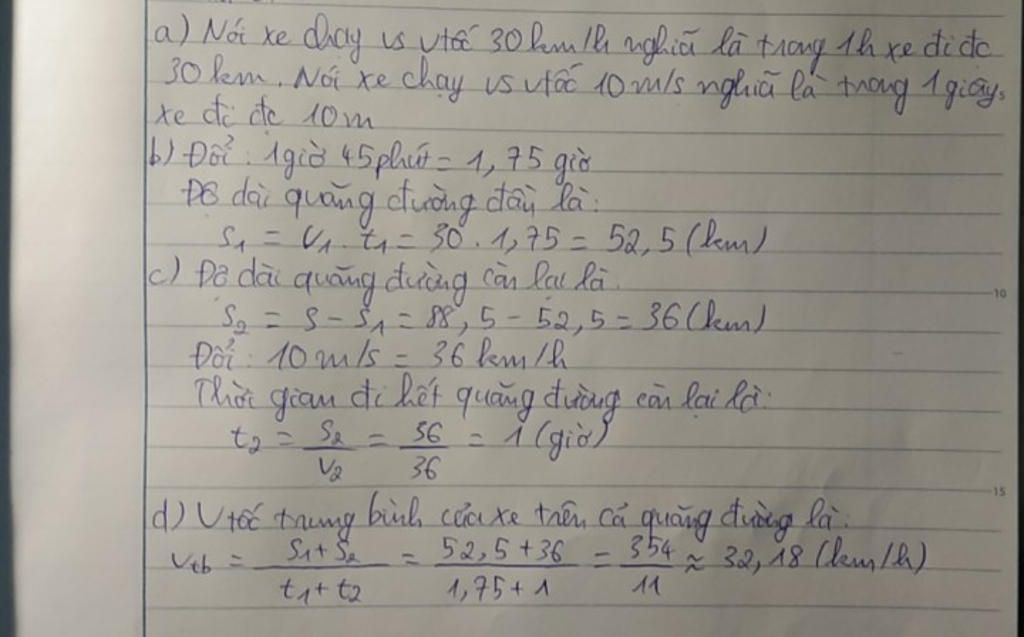 a) Nói xe chạy vs vtốc 30km/h nghiã là trong 1h xe đi đc
30km. Nói xe chạy vs vtốc 10m/s nghiã là trong 1 giây,
xe đi đc 10m
b) Đổi: 1giờ 45phút = 1,75 giờ
Độ dài quãng đường đầu là:
S₁ = V₁. t₁ = 30.1,75 = 52,5 (km)
c) Độ dài quãng đường còn lại là:
10
S₂ = S - S₁ = 88,5 - 52,5 = 36 (km)
Đổi: 10m/s = 36km/h
Thời gian đi hết quãng đường còn lại là:
t₂ = S₂/V₂ = 36/36 = 1 (giờ)
15
d) Vtốc trung bình của xe trên cả quãng đường là:
Vtb = (S₁+S₂)/(t₁+t₂) = (52,5+36)/(1,75+1) = 354/11 ≈ 32,18 (km/h)